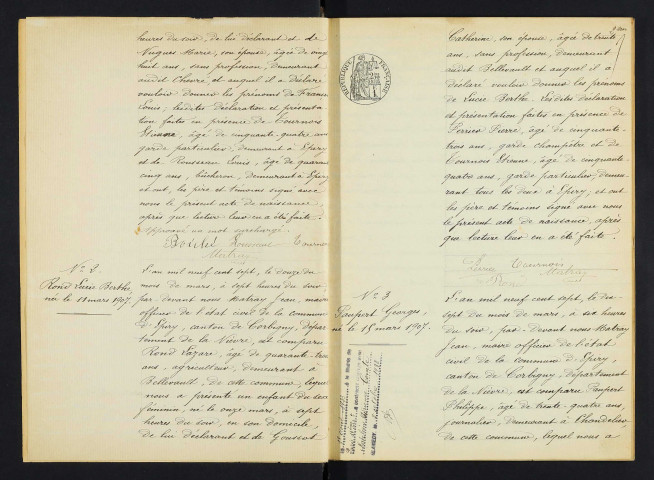 heures du soir, de lui déclarant et de
Nugues Marie, son épouse, âgée de vingt
huit ans, sans profession, demeurant
audit Chevré et auquel il a déclaré
vouloir donner les prénoms de Francis
Louis; lesdites déclaration et présenta-
tion faites en présence de Tournois
Etienne, âgé de cinquante-quatre ans
garde particulier, demeurant à Epiry
et de Rousseau Louis, âgé de quarante
cinq ans, bûcheron, demeurant à Epiry
et ont, les père et témoins signé avec
nous le présent acte de naissance,
après que lecture leur en a été faite.
Approuvé un mot surchargé.
Rousseau Tournois
Matray
N° 2
Rond Lucie Berthe,
née le 11 mars 1907.
L'an mil neuf cent sept, le douze du
mois de mars, à sept heures du soir,
par devant nous Matray Jean, maire
officier de l'état civil de la commune
d'Epiry, canton de Corbigny, dépar-
tement de la Nièvre, est comparu
Rond Lazare, âgé de quarante-trois
ans, agriculteur, demeurant à
Bellevault, de cette commune, lequel
nous a présenté un enfant du sexe
féminin, né le onze mars, à sept
heures du soir, en son domicile,
de lui déclarant et de Goussot
RÉPUBLIQUE FRANÇAISE
Catherine, son épouse, âgée de trente
ans, sans profession, demeurant
audit Bellevault et auquel il a
déclaré vouloir donner les prénoms
de Lucie Berthe. Lesdites déclaration
et présentation faites en présence de
Perrier Pierre, âgé de cinquante-
trois ans, garde champêtre et de
Tournois Etienne, âgé de cinquante-
quatre ans, garde particulier, demeu-
rant tous les deux à Epiry, et ont
les père et témoins signé avec nous
le présent acte de naissance, après
que lecture leur en a été faite.
Tournois
Matray
Rond
N° 3
Paupert Georges,
né le 15 mars 1907.
L'an mil neuf cent sept, le dix-
sept du mois de mars, à six heures
du soir, par-devant nous Matray
Jean, maire officier de l'état
civil de la commune d'Epiry,
canton de Corbigny, département
de la Nièvre, est comparu Paupert
Philippe, âgé de trente-quatre ans,
journalier, demeurant à Chandelier
de cette commune, lequel nous a